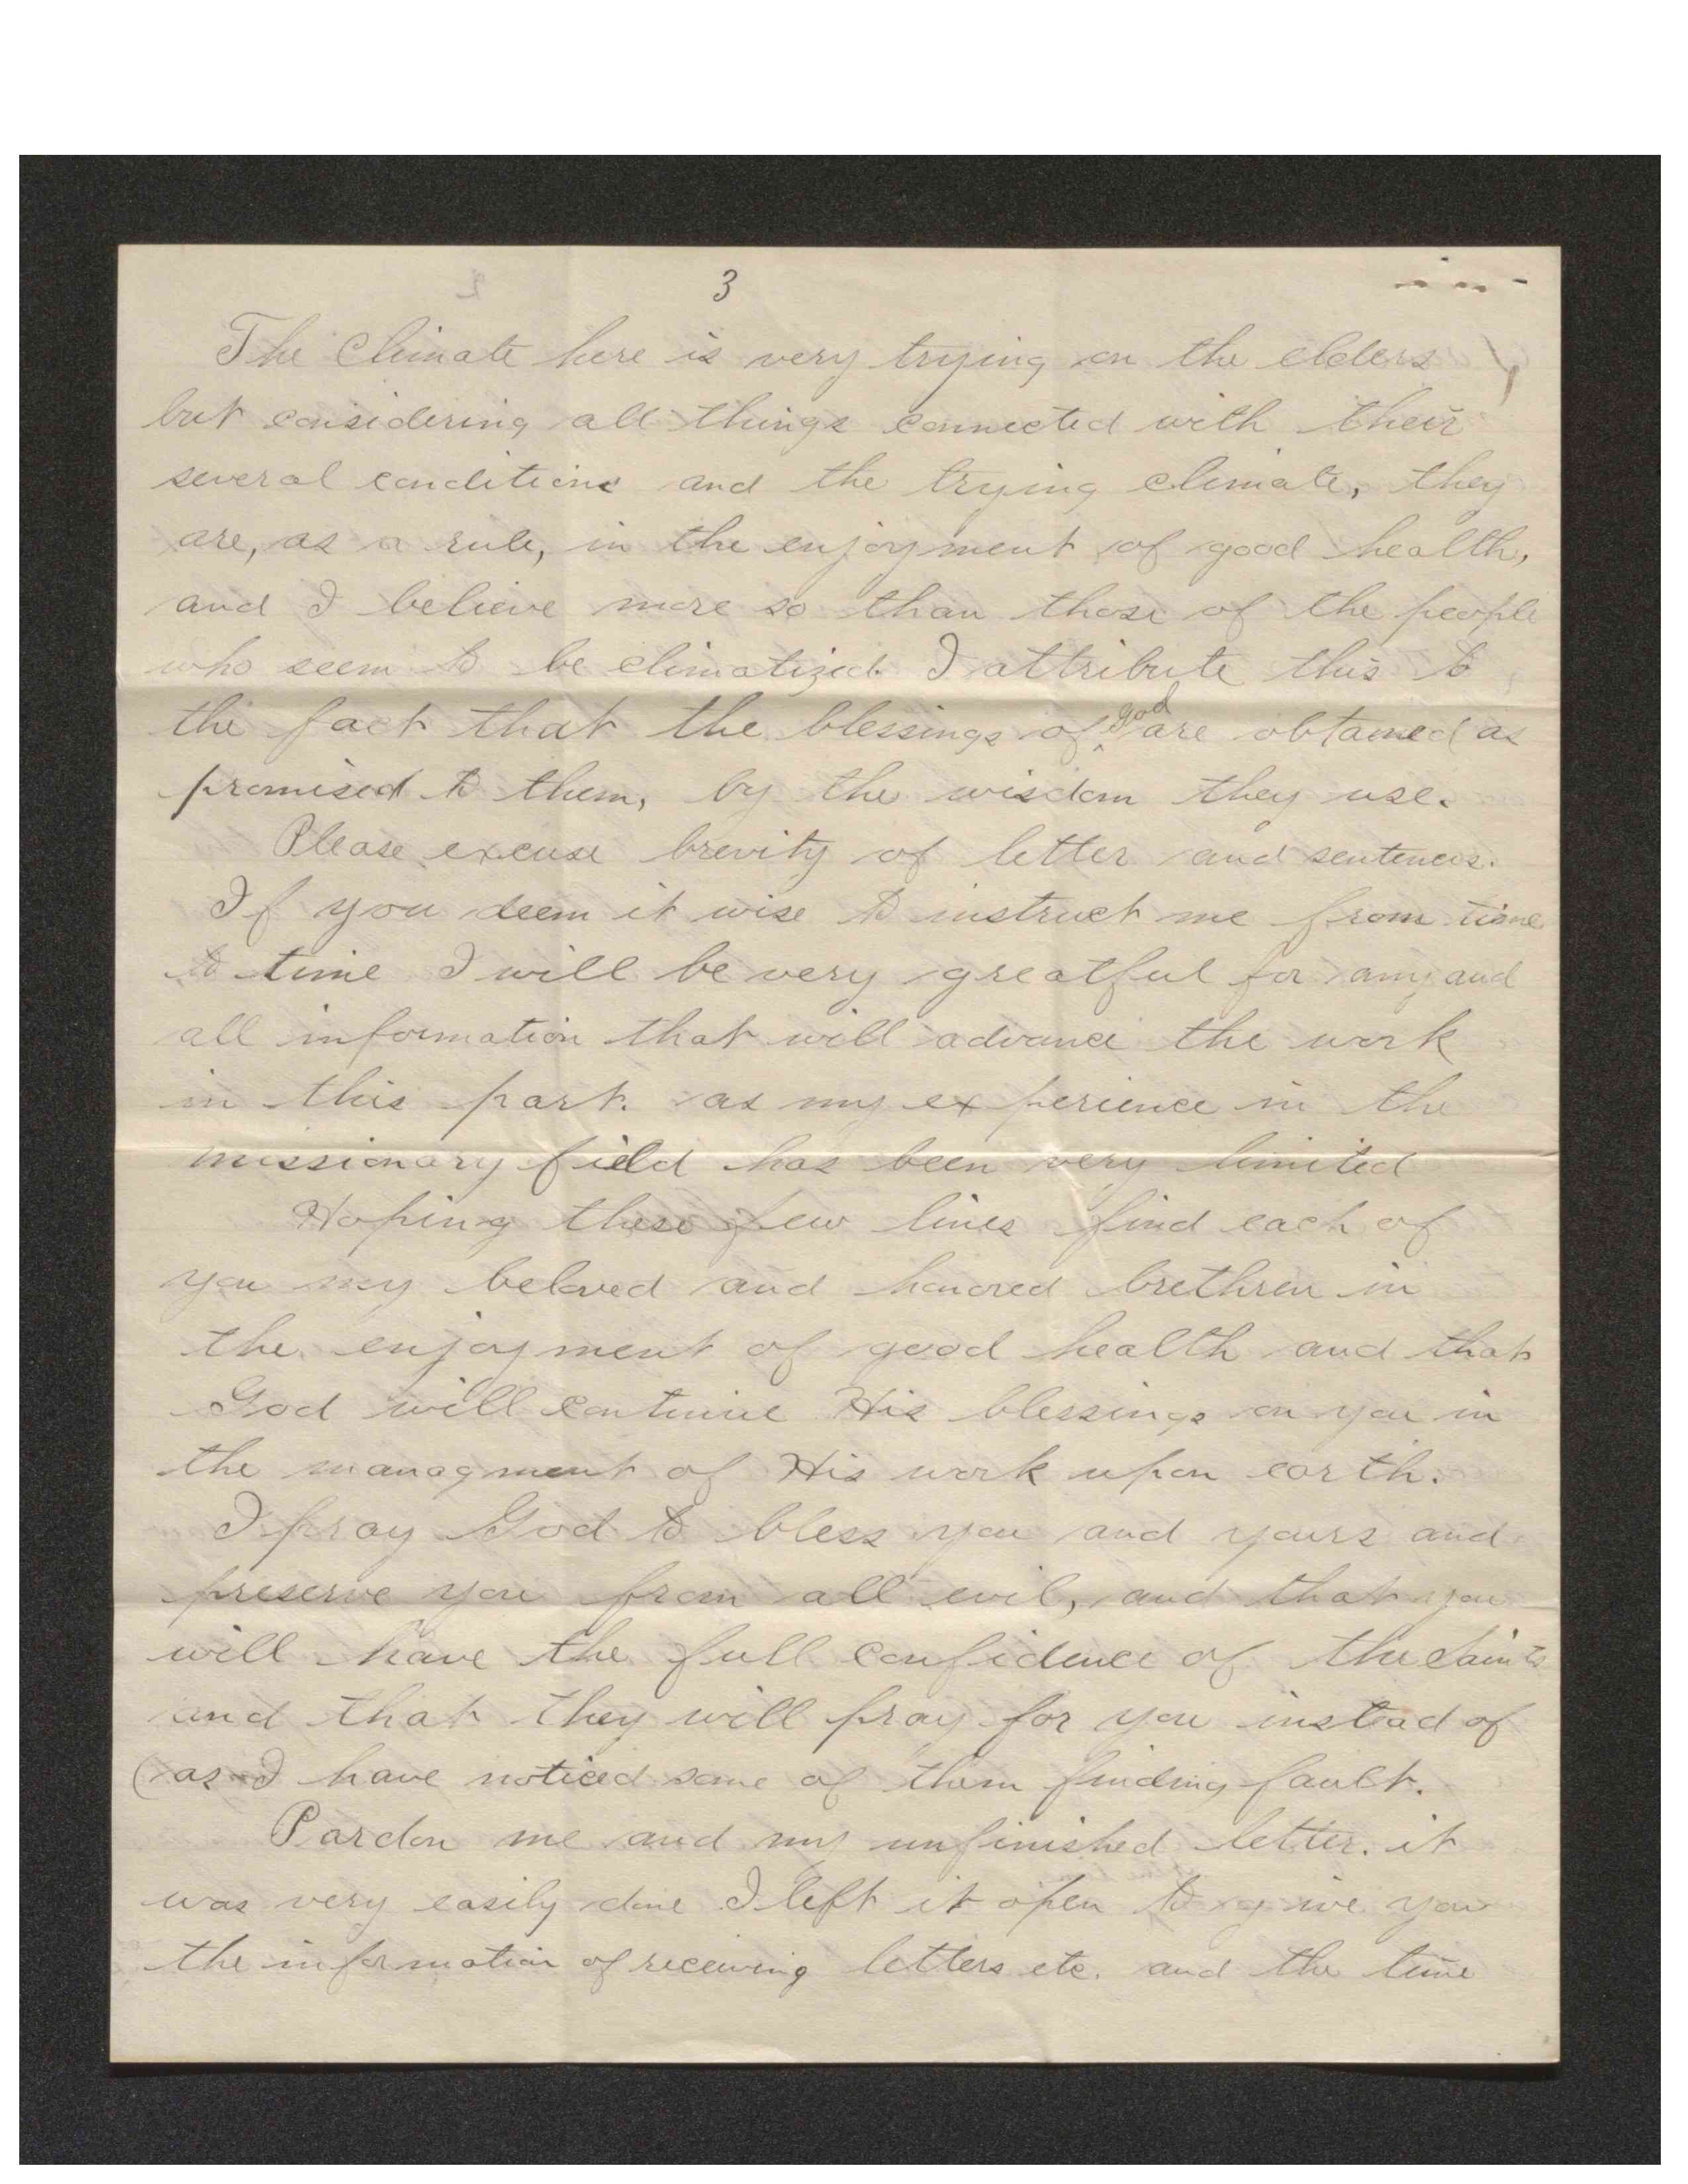 3
The Climate here is very trying on the elders
but considering all things connected with their
several conditions and the trying climate, they
are, as a rule, in the enjoyment of good health,
and I believe more so than those of the people
who seem to be climatized. I attribute this to
the fact that the blessings of god are obtained as
promised to them, by the wisdom they use.
Please excuse brevity of letter and sentences.
If you deem it wise to instruct me from time
to time I will be very greatful for any and
all information that will advance the work
in this part. as my experience in the
missionary field has been very limited
Hoping these few lines find each of
you my beloved and honored brethren in
the enjoyment of good health and that
God will continue His blessings on you in
the managment of His work upon earth.
I pray God to bless you and yours and
preserve you from all evil, and that you
will have the full confidence of the Saints
and that they will pray for you instead of
(as I have noticed some of them finding fault.
Pardon me and my unfinished letter. it
was very easily done I left it open to give you
the information of receiving letters etc. and the time